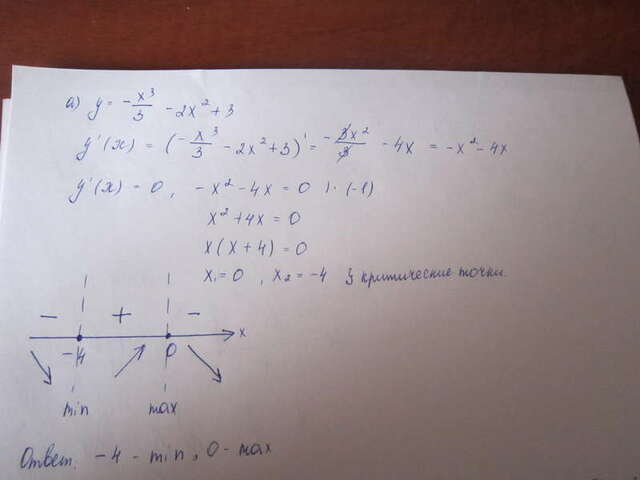 а) y = -x³/3 - 2x² + 3
y'(x) = (-x³/3 - 2x² + 3)' = -3x²/3 - 4x = -x² - 4x
y'(x) = 0, -x² - 4x = 0 |· (-1)
x² + 4x = 0
x(x + 4) = 0
x₁ = 0, x₂ = -4 } критические точки.
- + -
-4 0 x
min max
Ответ. -4 - min, 0 - max